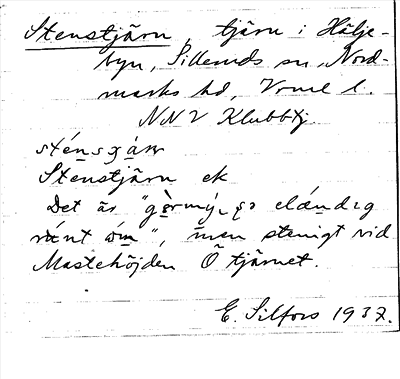 Stenstjärn, tjärn i Hölje-
byn, Silleruds sn, Nord-
marks hd, Vrml l.
NNV Klubbtj.
Stenstjärn ek
Det är " eländig
runt om", men stenigt vid
Mastehöjden Ö tjärnet.
E. Silfors 1937.